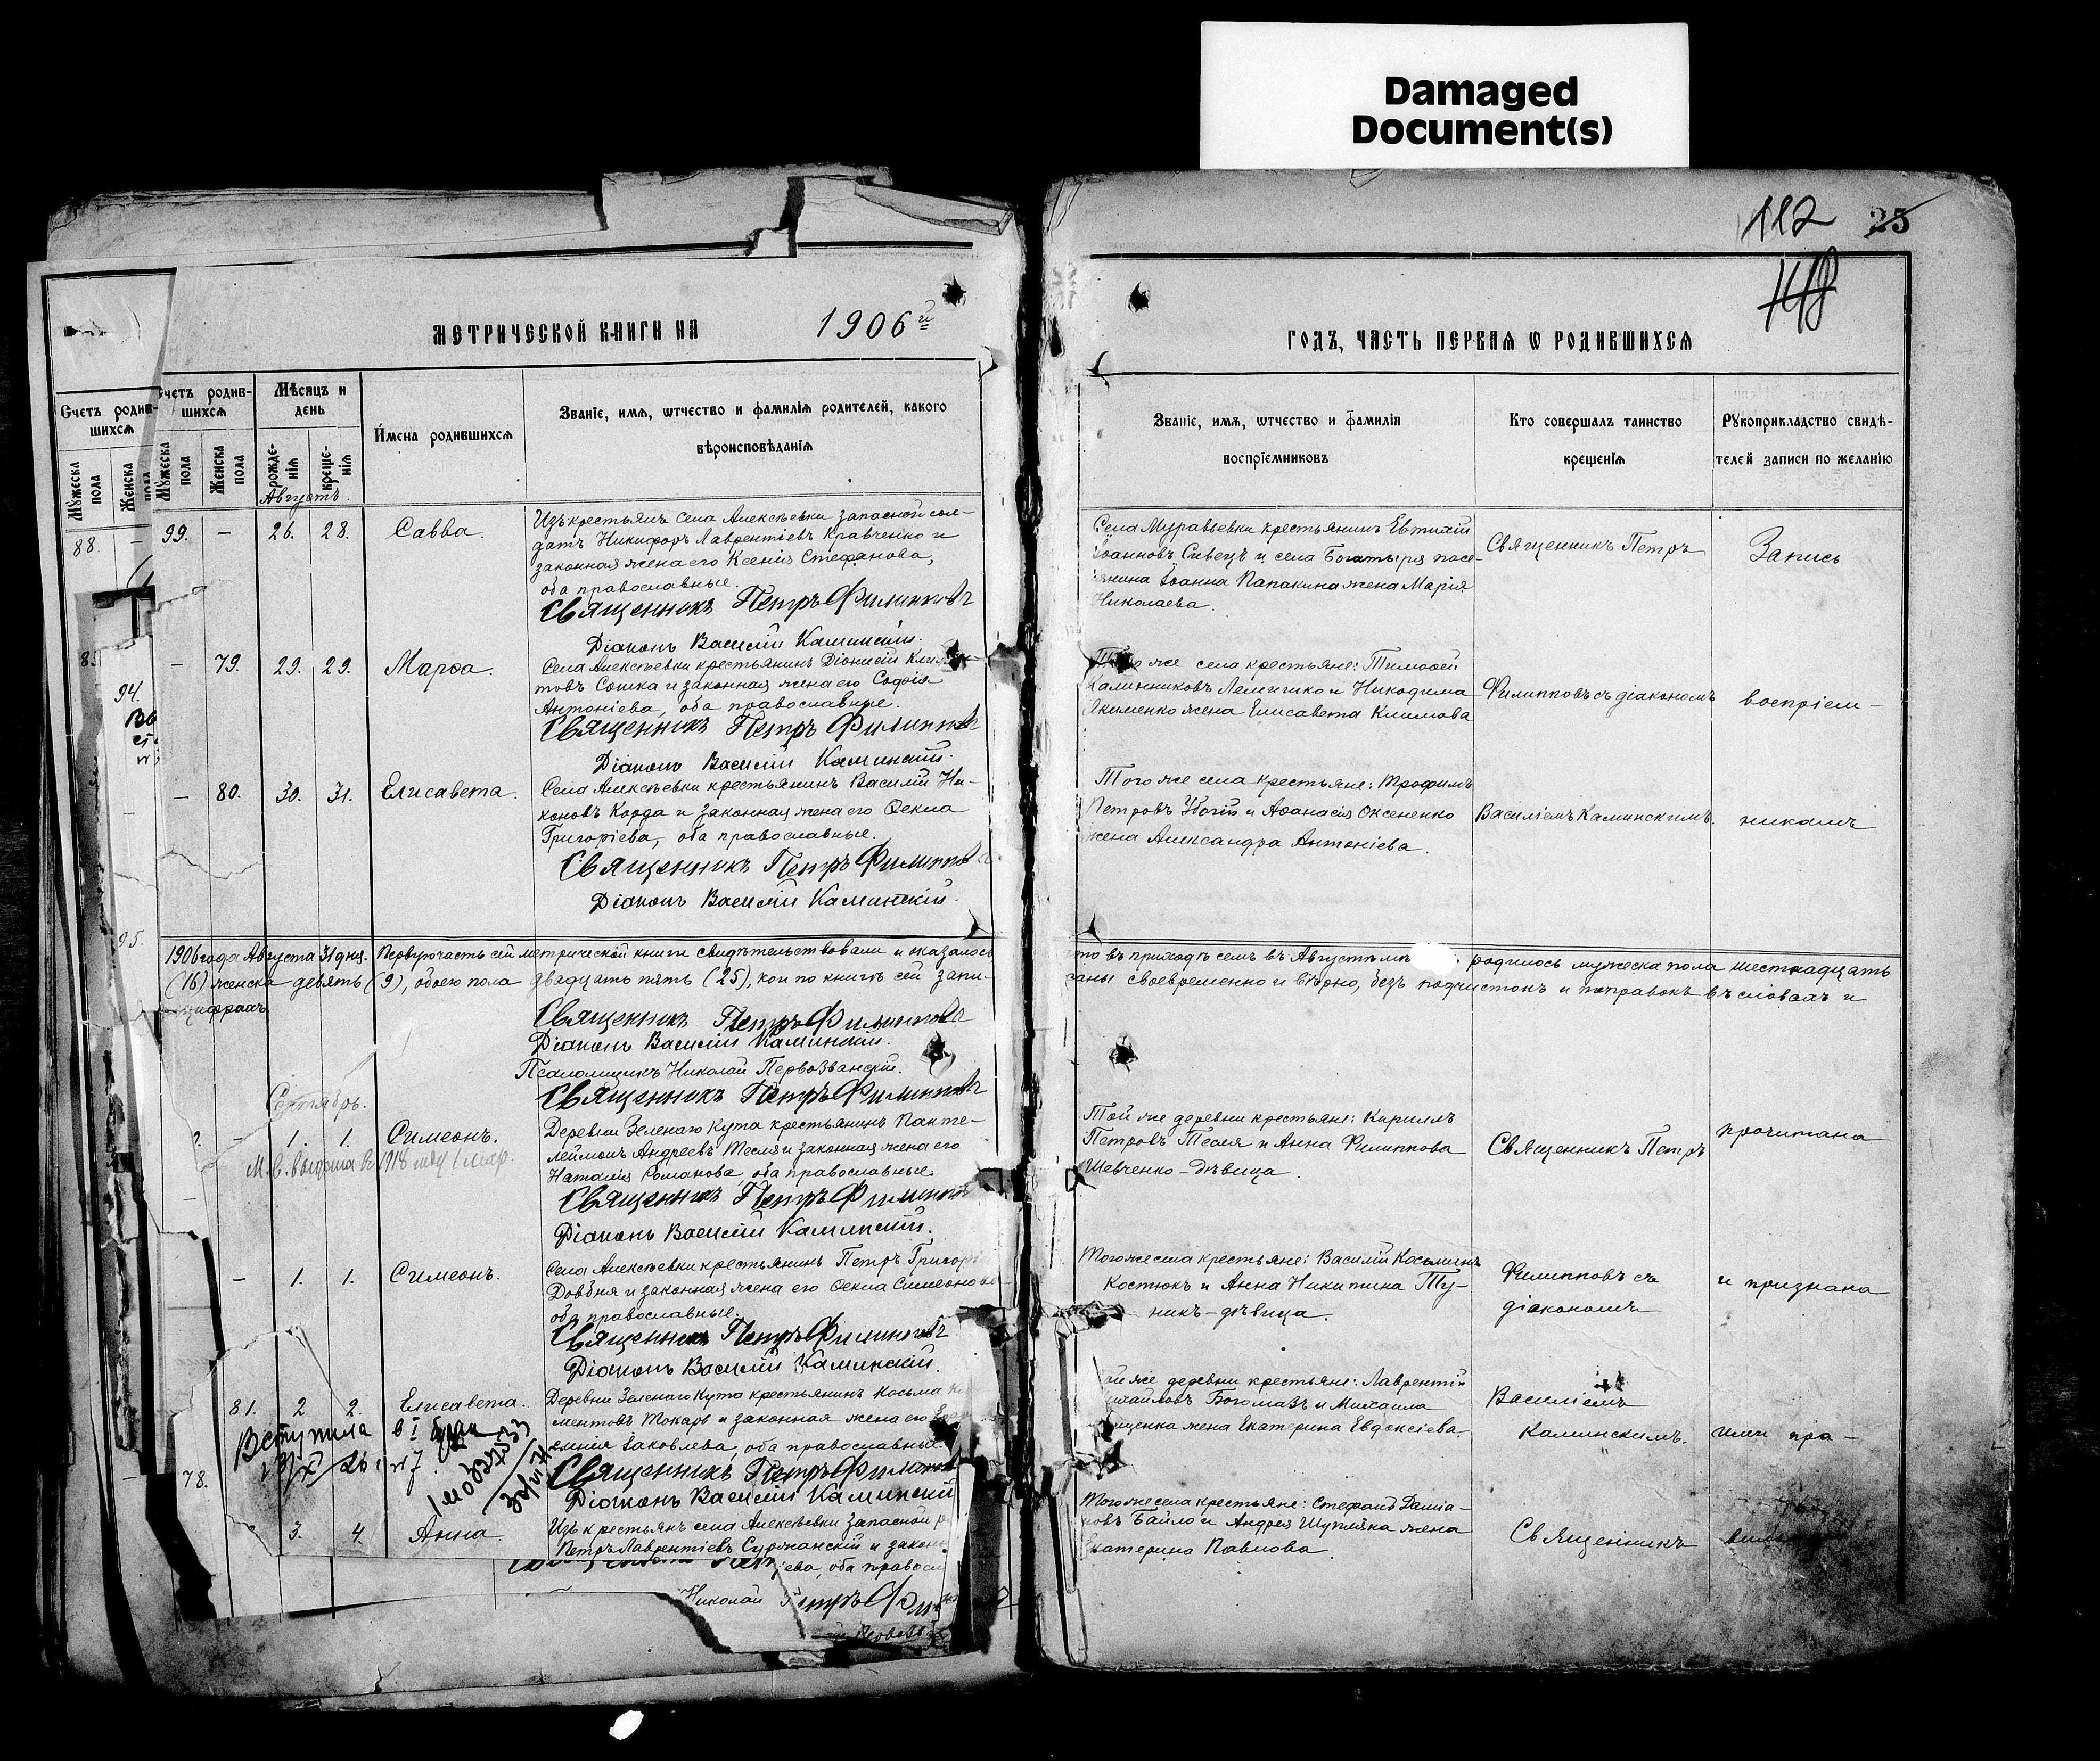 Damaged
Document(s)
112 25
118
МЕТРИЧЕСКОЙ КНИГИ НА 1906й
ГОДЪ, ЧАСТЬ ПЕРВАЯ Ѡ РОДИВШИХСЯ
Счетъ родив-
шихся
Мужеска пола
Женска пола
Счетъ родив-
шихся
Мужеска пола
Женска пола
Мѣсяцъ и
день
рожде-
нія
креще-
нія
Имена родившихся
Званіе, имя, ѡтчество и фамилія родителей, какого
вѣроисповѣданія
Званіе, имя, ѡтчество и фамилія
воспріемниковъ
Кто совершалъ таинство
крещенія
Рукоприкладство свидѣ-
телей записи по желанію
Августъ.
88. –
94.
95.
78.
99. – 26. 28. Савва.
Изъ крестьянъ села Алексѣевки запасной сол-
датъ Никифоръ Лаврентіевъ Кравченко и
законная жена его Ксенія Стефанова,
оба православные.
Священникъ Петръ Филипповъ
Діаконъ Василій Каминскій.
Села Муравьевки крестьянинъ Евтихій
Іоанновъ Сивецъ и села Богатыря посе-
янина Іоанна Папакина жена Марія
Николаева.
Священникъ Петръ
Запись
– 79. 29. 29. Марѳа.
Села Алексѣевки крестьянинъ Діонисій
товъ Сошка и законная жена его Софія
Антоніева, оба православные.
Священникъ Петръ Филипповъ
Діаконъ Василій Каминскій.
же села крестьяне: Тимофей
Калинниковъ Лемишко и Никодима
Якименко жена Елисавета Климова
Филипповъ съ діакономъ
воспріем-
– 80. 30. 31. Елисавета.
Села Алексѣевки крестьянинъ Василій Ни-
коновъ Корда и законная жена его Ѳекла
Григоріева, оба православные.
Священникъ Петръ Филипповъ
Діаконъ Василій Каминскій.
Того же села крестьяне: Трофимъ
Петровъ Убогій и Аѳанасія Оксененко
жена Александра Антоніева.
Василіемъ Каминскимъ.
никамъ
1906 года Августа 31 дня. Первую часть сей метрической книги свидѣтельствовали и оказалось
что въ приходѣ семъ въ Августѣ родилось мужеска пола шестнадцать
(16) женска девять (9), обоего пола двадцать пять (25), кои по книгѣ сей запи-
саны своевременно и вѣрно, безъ подчистокъ и поправокъ въ словахъ и
цифрахъ.
Священникъ Петръ Филипповъ
Діаконъ Василій Каминскій.
Псаломщикъ Николай Первозванскій.
Священникъ Петръ Филипповъ
Сентябрь.
– 1. 1. Симеонъ.
Деревни Зеленаго Кута крестьянинъ Панте-
леймонъ Андреевъ Тесля и законная жена его
Наталія Романова, оба православные.
Священникъ Петръ Филипповъ
Діаконъ Василій Каминскій.
Той же деревни крестьяне: Кириллъ
Петровъ Тесля и Анна Филиппова
Шевченко – дѣвица.
Священникъ Петръ
прочитана
– 1. 1. Симеонъ.
Села Алексѣевки крестьянинъ Петръ
Довбня и законная жена его Ѳекла Симеонова
оба православные.
Священникъ Петръ Филипповъ
Діаконъ Василій Каминскій.
Того же села крестьяне: Василій Косьминъ
Костюкъ и Анна Никитина Ту-
никъ – дѣвица.
Филипповъ съ
діакономъ
и признана
81. 2 2. Елисавета.
Деревни Зеленаго Кута крестьянинъ Косьма
ментовъ Токарь и законная жена его
Іаковлева, оба православные.
Священникъ Петръ Филипповъ
Діаконъ Василій Каминскій
Вступила
деревни крестьяне: Лаврентій
Михайловъ Богомазъ и Михаила
жена Екатерина Евдоксіева.
Василіемъ
Каминскимъ.
ими пра-
3. 4. Анна.
Изъ крестьянъ села Алексѣевки запасной
Петръ Лаврентіевъ Суржанскій и
оба
Николай Петръ
Того же села крестьяне: Стефанъ Даміа-
новъ Байло и Андрея Шупляка жена
Екатерина Павлова.
Священникъ